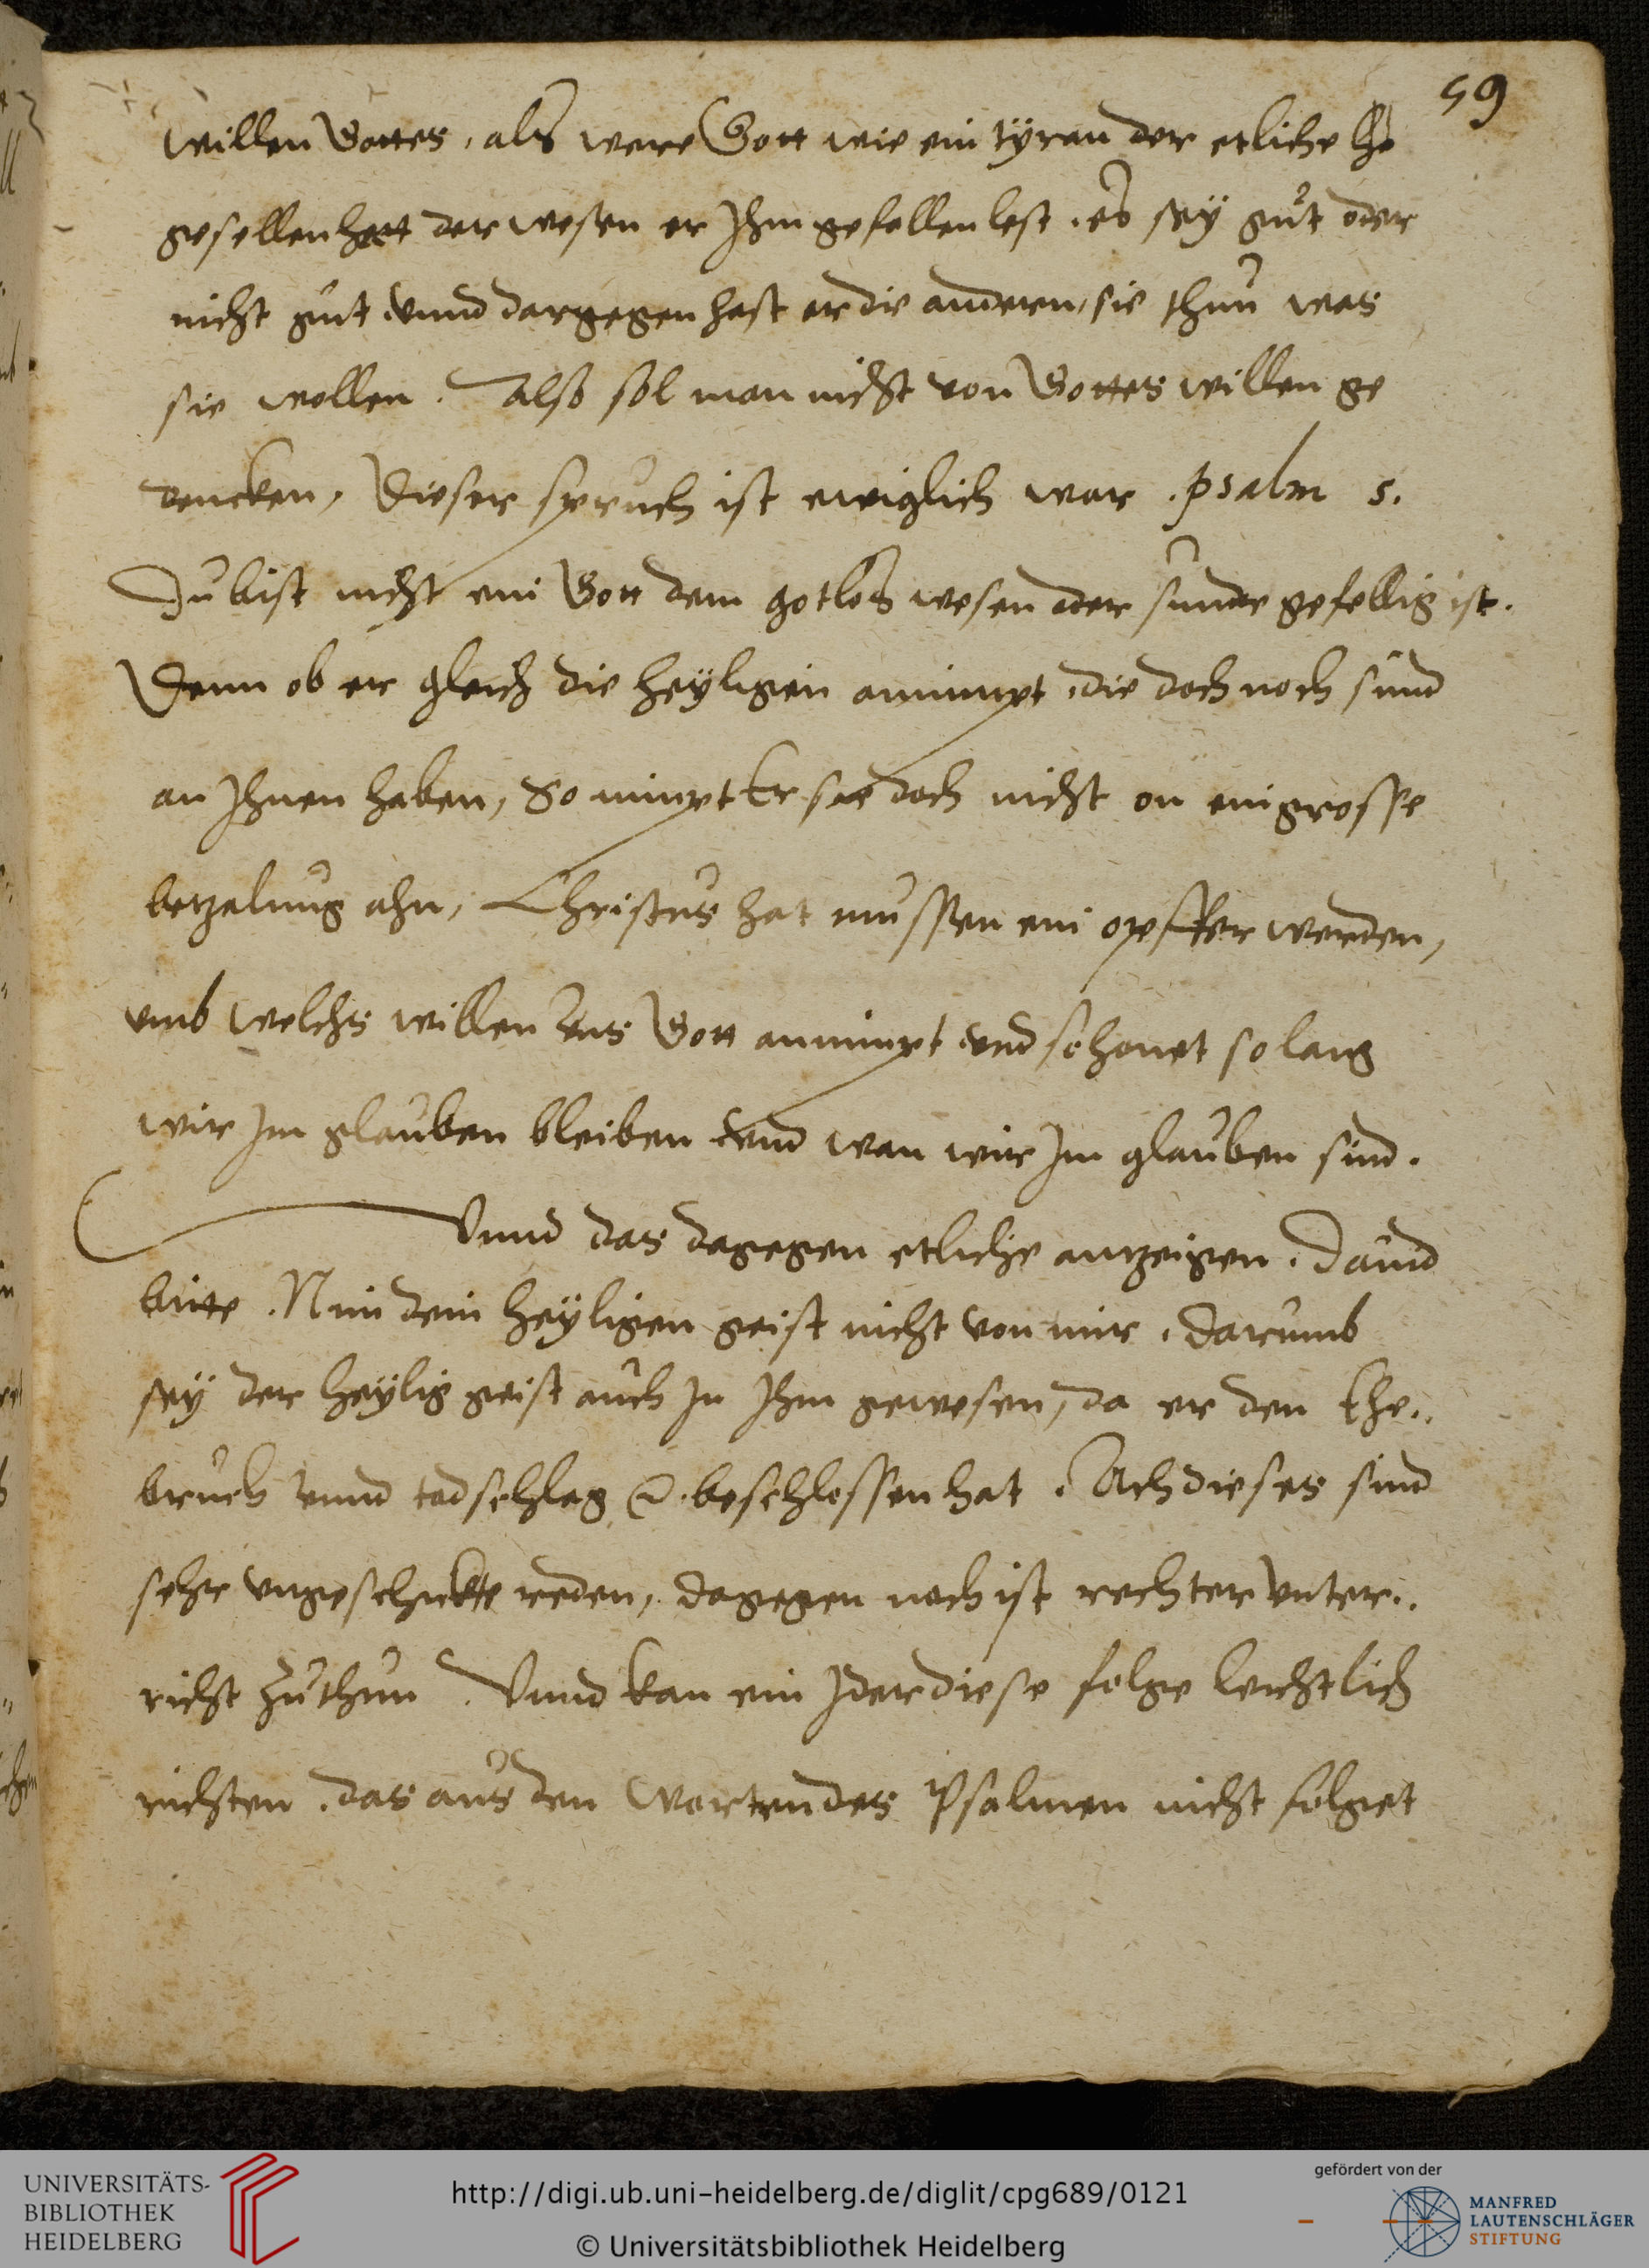 59
willen Gottes, als were Gott wie ein tÿran der etliche
gesellen hett der wesen er Ihm gefallen lest, es seÿ gut oder
nicht gut, vnnd dargegen hast er die anderen, sie thun was
sie wollen. Also sol man nicht von Gottes willen ge
dencken, Dieser spruch ist ewiglich war, psalm 5.
Du bist nicht ein Gott dem gotlos wesen oder sunde gefellig ist.
Denn ob er gleich die heÿligen annimpt, die doch noch sund
an Ihnen haben, So nimpt er sie doch nicht on ein grosse
betzalung ahn, Christus hat mussen ein opffer werden,
vmb welchs willen vns Gott annimpt vnd schonet so lang
wir Im glauben bleiben vnd wan wir Im glauben sind.
Vnnd das dagegen etliche antzeigen, Dauid
bitte, Nim dein heÿligen geist nicht von mir, Darumb
seÿ der heÿlig geist auch In Ihm gewesen, da er den Ehe..
bruch vnnd todschlag &. beschlossen hat, Ach dieses sind
sehr vngeschickte reden, dagegen noch ist rechter vnter..
richt zuthun. Vnnd kan ein Jder diese folge leichtlich
richten, das aus den worten des Psalmen nicht folget
UNIVERSITÄTS-
BIBLIOTHEK
HEIDELBERG
http://digi.ub.uni-heidelberg.de/diglit/cpg689/0121
© Universitätsbibliothek Heidelberg
gefördert von der
MANFRED
LAUTENSCHLÄGER
STIFTUNG